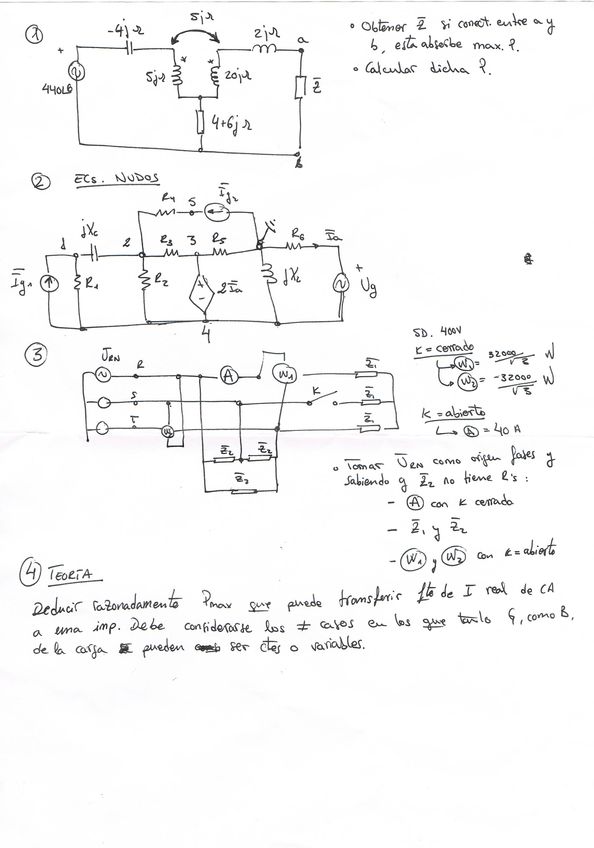 1
5jΩ
-4jΩ
2jΩ
a
+
440∟0
5jΩ
*
*
20jΩ
Z̄
4+6jΩ
b
• Obtener Z̄ si conect. entre a y
b, esta absorbe max. P.
• Calcular dicha P.
2 ECS. NUDOS
R4
5
Īg2
1
jXc
2
R3
3
R5
R6
Īa
Īg1
R1
R2
+
-
2Īa
jXL
+
Ug
4
3
ŪRN
R
A
W1
Z̄1
S
K
Z̄1
T
Z̄1
Z̄2
Z̄2
Z̄2
SD. 400V
K = cerrado
W1 = 32000/√3 W
W2 = -32000/√3 W
K = abierto
A = 40 A
• Tomar ŪRN como origen fases y
sabiendo q Z̄2 no tiene R's:
- A con K cerrado
- Z̄1 y Z̄2
- W1 y W2 con K = abierto
4 TEORÍA
Deducir razonadamente Pmax que puede transferir fte de I real de CA
a una imp. Debe considerarse los ≠ casos en los que tanto G, como B,
de la carga pueden ser ctes o variables.